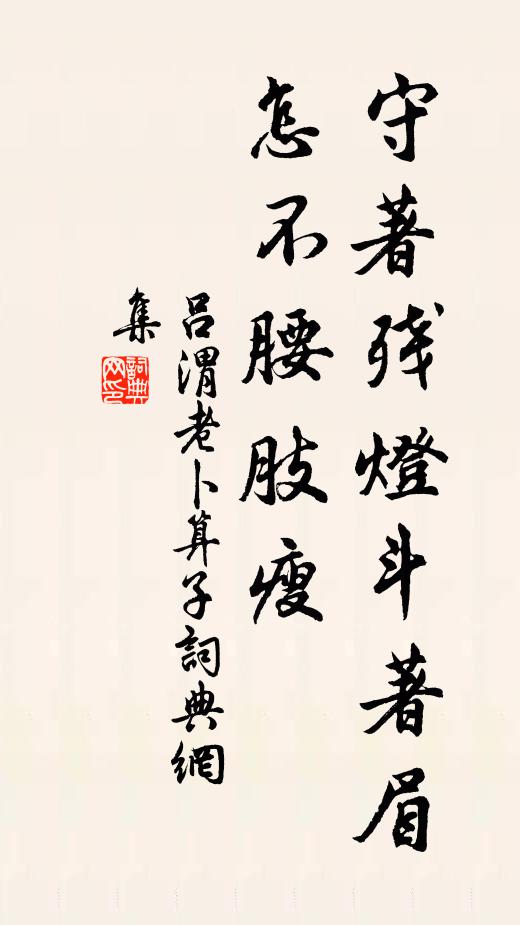 守著残燈斗著眉
怎不腰肢瘦
吕渭老卜算子詞典網
集
詞典
网印